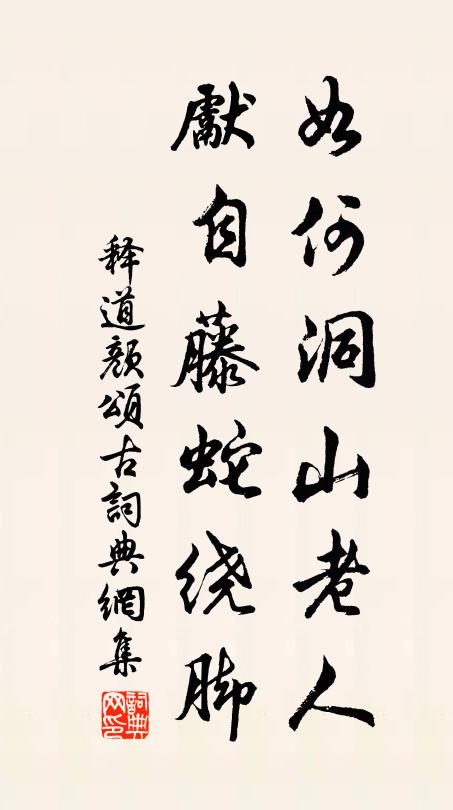 如何洞山老人
獻自藤蛇绕脚
释道颜頌古詞典網集
詞典网印